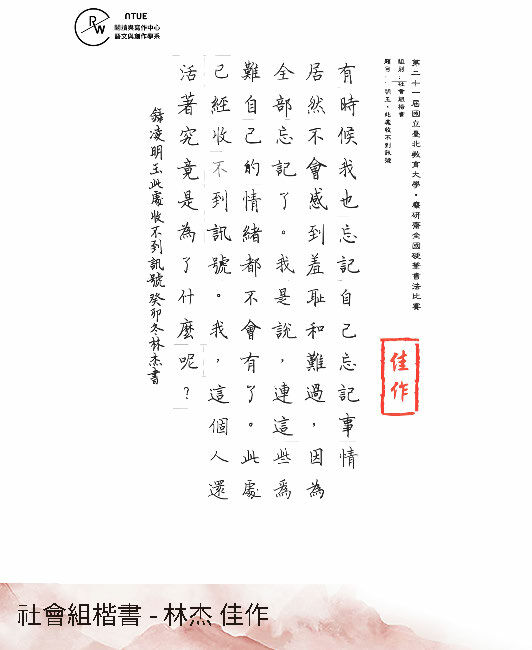 RW
NTUE
閱讀與寫作中心
語文與創作學系
第二十一屆國立臺北教育大學・麋研齋全國硬筆書法比賽
組別：社會組楷書
題目：凌明玉・此處收不到訊號
有時候我也忘記自己忘記事情
居然不會感到羞恥和難過，因為
全部忘記了。我是說，連這些為
難自己的情緒都不會有了。此處
已經收不到訊號。我，這個人還
活著究竟是為了什麼呢？
錄凌明玉此處收不到訊號 癸卯冬林杰書
佳作
社會組楷書 - 林杰 佳作